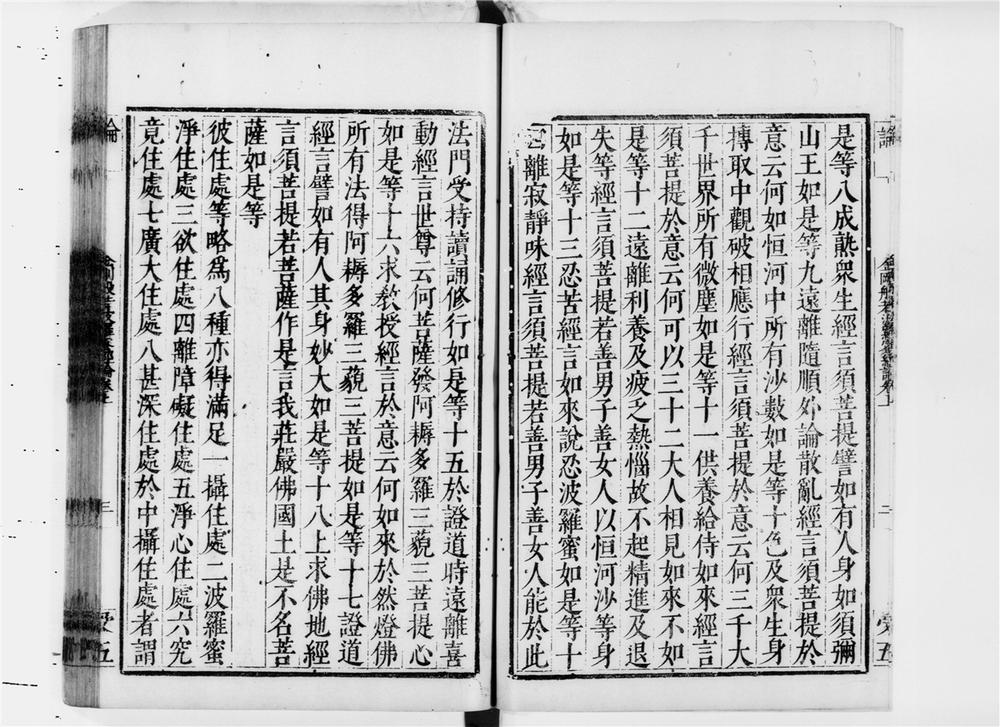 是等八成熟衆生經言須菩提譬如有人身如須彌
山王如是等九遠離隨順外論散亂經言須菩提於
意云何如恒河中所有沙數如是等十色及衆生身
摶取中觀破相應行經言須菩提於意云何三千大
千世界所有微塵如是等十一供養給侍如來經言
須菩提於意云何可以三十二大人相見如來不如
是等十二遠離利養及疲乏熱惱故不起精進及退
失等經言須菩提若善男子善女人以恒河沙等身
如是等十三忍苦經言如來說忍波羅蜜如是等十
離寂靜味經言須菩提若善男子善女人能於此
法門受持讀誦修行如是等十五於證道時遠離喜
動經言世尊云何菩薩發阿耨多羅三藐三菩提心
如是等十六求教授經言於意云何如來於然燈佛
所有法得阿耨多羅三藐三菩提如是等十七證道
經言譬如有人其身妙大如是等十八上求佛地經
言須菩提若菩薩作是言我莊嚴佛國土是不名菩
薩如是等
彼住處等略爲八種亦得滿足一攝住處二波羅蜜
淨住處三欲住處四離障礙住處五淨心住處六究
竟住處七廣大住處八甚深住處於中攝住處者謂
論
三
受五